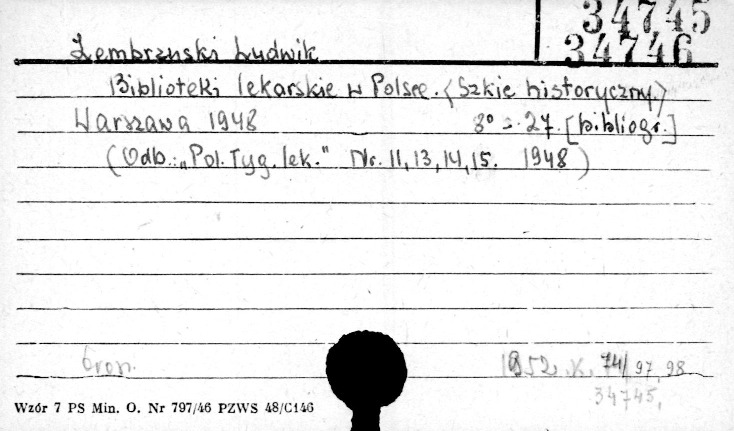 34745
34746
Zembrzuski Ludwik
Biblioteki lekarskie w Polsce. (Szkic historyczny.)
Warszawa 1948 8° s. 27. [bibliogr.]
(Odb.: „Pol. Tyg. lek." Nr. 11, 13, 14, 15. 1948)
1952. K. 74/97, 98
34745,
Wzór 7 PS Min. O. Nr 797/46 PZWS 48/C146